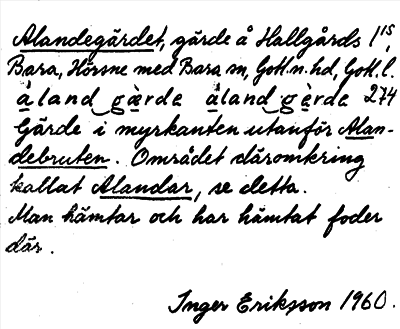 Alandegärdet, gärde å Hallgårds 1¹⁵,
Bara, Hörsne med Bara sn, Gotl.n.hd, Gotl.l.
åland gärde åland gèrde 274
Gärde i myrkanten utanför Alan-
debruten. Området däromkring
kallat Alandar, se detta.
Man hämtar och har hämtat foder
där.
Inger Eriksson 1960.